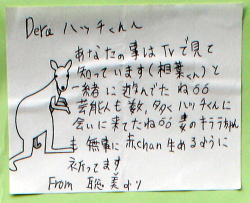 Dera ハッチくんへ
あなたの事はTvで見て
知っています(相葉くんと
一緒に遊んでたね66
芸能人も数多くハッチくんに
会いに来てたね66 妻のキララちゃん
も 無事に赤chan生めるように
祈ってます
From 聡美より